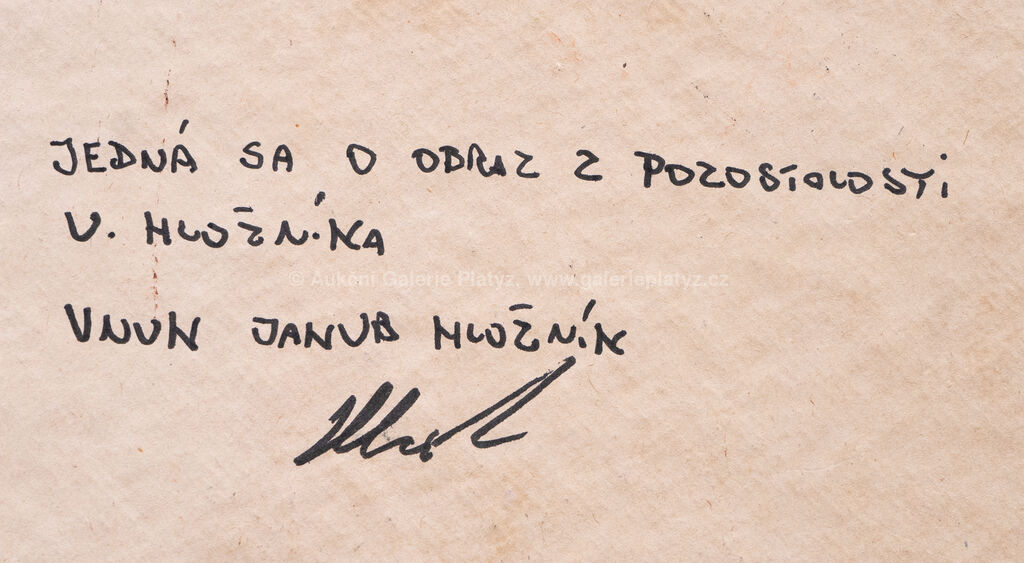 JEDNÁ SA O OBRAZ Z POZOSTALOSTI
V. HLOŽNÍKA
© Aukční Galerie Platýz, www.galerieplatyz.cz
VNUK JAKUB HLOŽNÍK